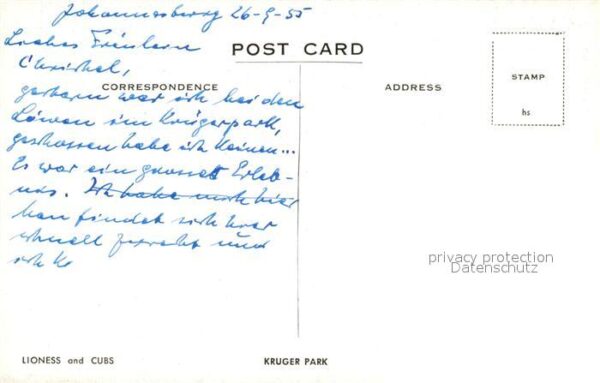 Johannesburg 26-9-55
Liebes Fräulein
Christel,
gestern war ich bei den
Löwen im Krügerpark,
geschossen habe ich keinen...
Es war ein grosses Erleb-
nis. Ich habe mich hier
han findet sich hier
schnell zurecht und
ich
POST CARD
CORRESPONDENCE
ADDRESS
STAMP
hs
privacy protection
Datenschutz
LIONESS and CUBS
KRUGER PARK